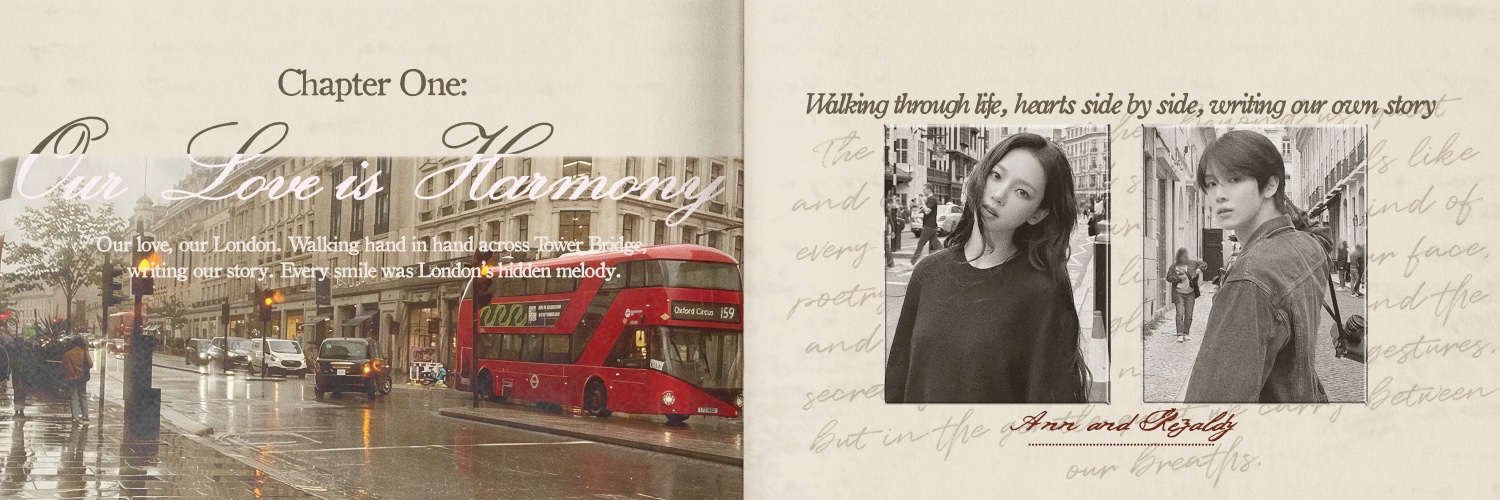 Chapter One:
Our Love is Harmony
Our love, our London. Walking hand in hand across Tower Bridge,
writing our story. Every smile was London's hidden melody.
Oxford Circus 159
Walking through life, hearts side by side, writing our own story
The
like
and
kind of
every-
face,
poetry
and the
and
gestures.
secret
carry between
but in the
our breaths.
Ann and Rezaldy